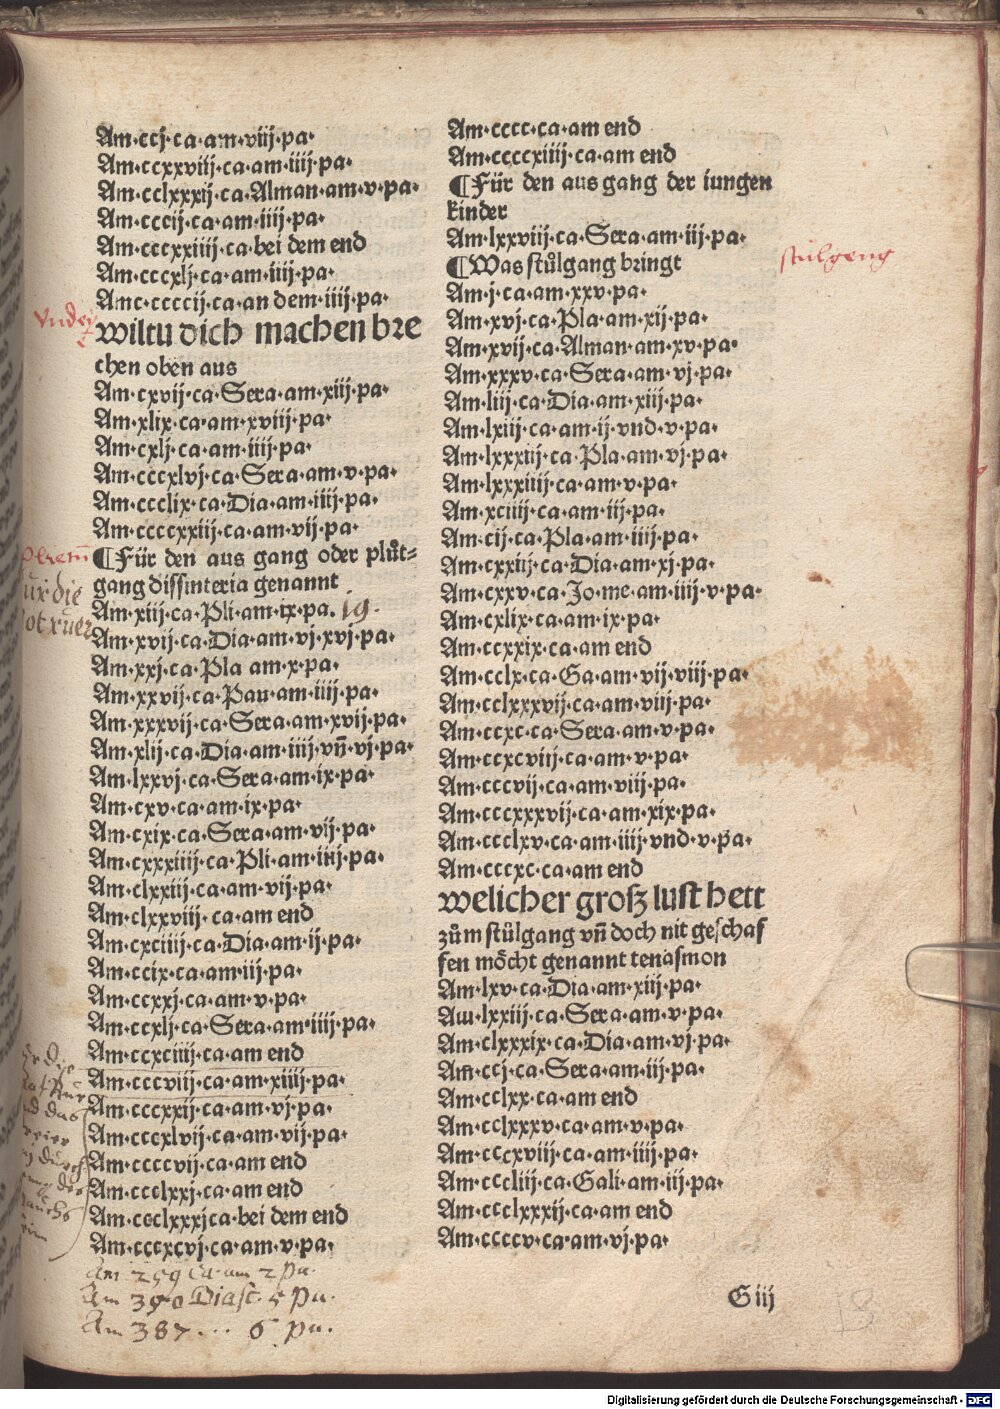 Am·ccj·ca·am·viij·pa·
Am·ccxxviij·ca·am·iiij·pa·
Am·cclxxxij·ca·Alman·am·v·pa·
Am·cccij·ca·am·iiij·pa·
Am·cccxxiiij·ca·bei dem end
Am·cccxlj·ca·am·iiij·pa·
Amc·ccccij·ca·an dem·iiij·pa·
wiltu dich machen bre
chen oben aus
Am·cxvij·ca·Sera·am·xiij·pa·
Am·xlix·ca·am·xviij·pa·
Am·cxlj·ca·am·iiij·pa·
Am·cccxlvj·ca·Sera·am·v·pa·
Am·ccclix·ca·Dia·am·iiij·pa·
Am·ccccxxiij·ca·am·vij·pa·
¶Für den aus gang oder plůt⸗
gang dissinteria genannt
Am·xiij·ca·Pli·am·ix·pa. 19.
Am·xvij·ca·Dia·am·vj·xvj·pa·
Am·xxj·ca·Pla am·x·pa·
Am·xxvij·ca·Pau·am·iiij·pa·
Am·xxxvij·ca·Sera·am·xvij·pa·
Am·xlij·ca·Dia·am·iiij·vñ·vj·pa·
Am·lxxvj·ca·Sera·am·ix·pa·
Am·cxv·ca·am·ix·pa·
Am·cxix·ca·Sera·am·vij·pa·
Am·cxxxiiij·ca·Pli·am·iiij·pa·
Am·clxxiij·ca·am·vij·pa·
Am·clxxviij·ca·am end
Am·cxciiij·ca·Dia·am·ij·pa·
Am·ccix·ca·am·iij·pa·
Am·ccxxj·ca·am·v·pa·
Am·ccxlj·ca·Sera·am·iiij·pa·
Am·ccxciiij·ca·am end
Am·cccviij·ca·am·xiiij·pa·
Am·cccxxij·ca·am·vj·pa·
Am·cccxlvij·ca·am·vij·pa·
Am·ccccvij·ca·am end
Am·ccclxxj·ca·am end
Am·ccclxxxj ca·bei dem end
Am·cccxcvj·ca·am·v·pa·
Am 259 Ca·am 2 pa.
Am 390 Diasc. 5 pa.
Am 387 ... 6 pa.
Am·cccc·ca·am end
Am·ccccxiiij·ca·am end
¶Für den aus gang der iungen
kinder
Am·lxxviij·ca·Sera·am·iij·pa·
¶Was stůlgang bringt
stulgeng
Am·j·ca·am·xxv·pa·
Am·xvj·ca·Pla·am·xij·pa·
Am·xvij·ca·Alman·am·xv·pa·
Am·xxxv·ca·Sera·am·vj·pa·
Am·liij·ca·Dia·am·xiij·pa·
Am·lxiij·ca·am·ij·vnd·v·pa·
Am·lxxxiij·ca·Pla·am·vj·pa·
Am·lxxxiiij·ca·am·v·pa·
Am·xciiij·ca·am·iij·pa·
Am·cij·ca·Pla·am·iiij·pa·
Am·cxxiij·ca·Dia·am·xj·pa·
Am·cxxv·ca·Jo·me·am·iiij·v·pa·
Am·cxlix·ca·am·ix·pa·
Am·ccxxix·ca·am end
Am·cclx·ca·Ga·am·vij·viij·pa·
Am·cclxxxvij·ca·am·viij·pa·
Am·ccxc·ca·Sera·am·v·pa·
Am·ccxcviij·ca·am·v·pa·
Am·cccvij·ca·am·viij·pa·
Am·cccxxxvij·ca·am·xix·pa·
Am·ccclxv·ca·am·iiij·vnd·v·pa·
Am·cccxc·ca·am end
welicher groß lust hett
zům stülgang vñ doch nit geschaf
fen mȯcht genannt tenasmon
Am·lxv·ca·Dia·am·xiij·pa·
Am·lxxiij·ca·Sera·am·v·pa·
Am·clxxxix·ca·Dia·am·vj·pa·
Am·ccj·ca·Sera·am·iij·pa·
Am·cclxx·ca·am end
Am·cclxxxv·ca·am·v·pa·
Am·cccxviij·ca·am·iiij·pa·
Am·cccliij·ca·Gali·am·iij·pa·
Am·ccclxxxij·ca·am end
Am·ccccv·ca·am·vj·pa·
G iij
Digitalisierung gefördert durch die Deutsche Forschungsgemeinschaft - DFG